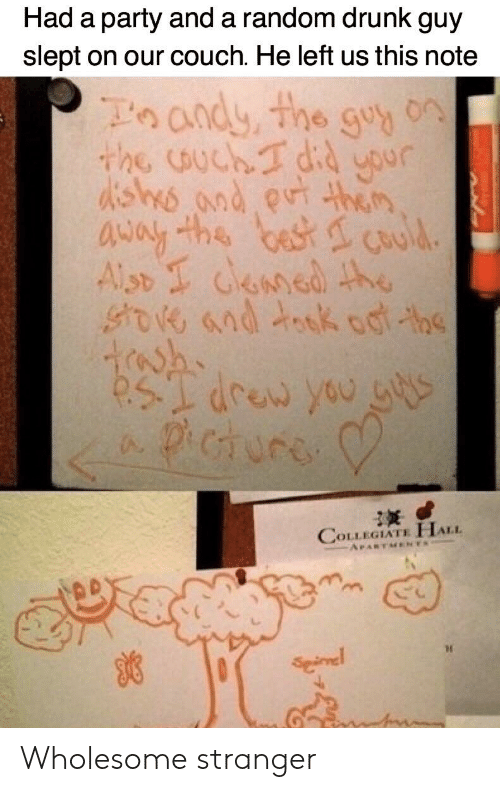 Had a party and a random drunk guy
slept on our couch. He left us this note
I'm andy, the guy on
the couch I did your
dishes and put them
away the best I could.
Also I cleaned the
stove and took out the
trash.
P.S. I drew you guys
a picture. ♡
COLLEGIATE HALL
APARTMENTS
Wholesome stranger